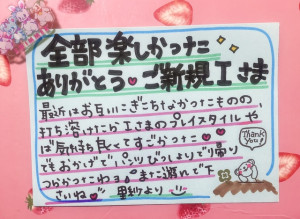 全部楽しかった
ありがとう♥ご新規Iさま
最近はお互いぎこちなかったものの、
打ち溶けたらIさまのプレイスタイルや、
は気持ち良くてすごかった♡
でもおかげでパンツびっしょりで帰り
つらかったわョ また遊んで下
さいね 里紗より
Thank You!